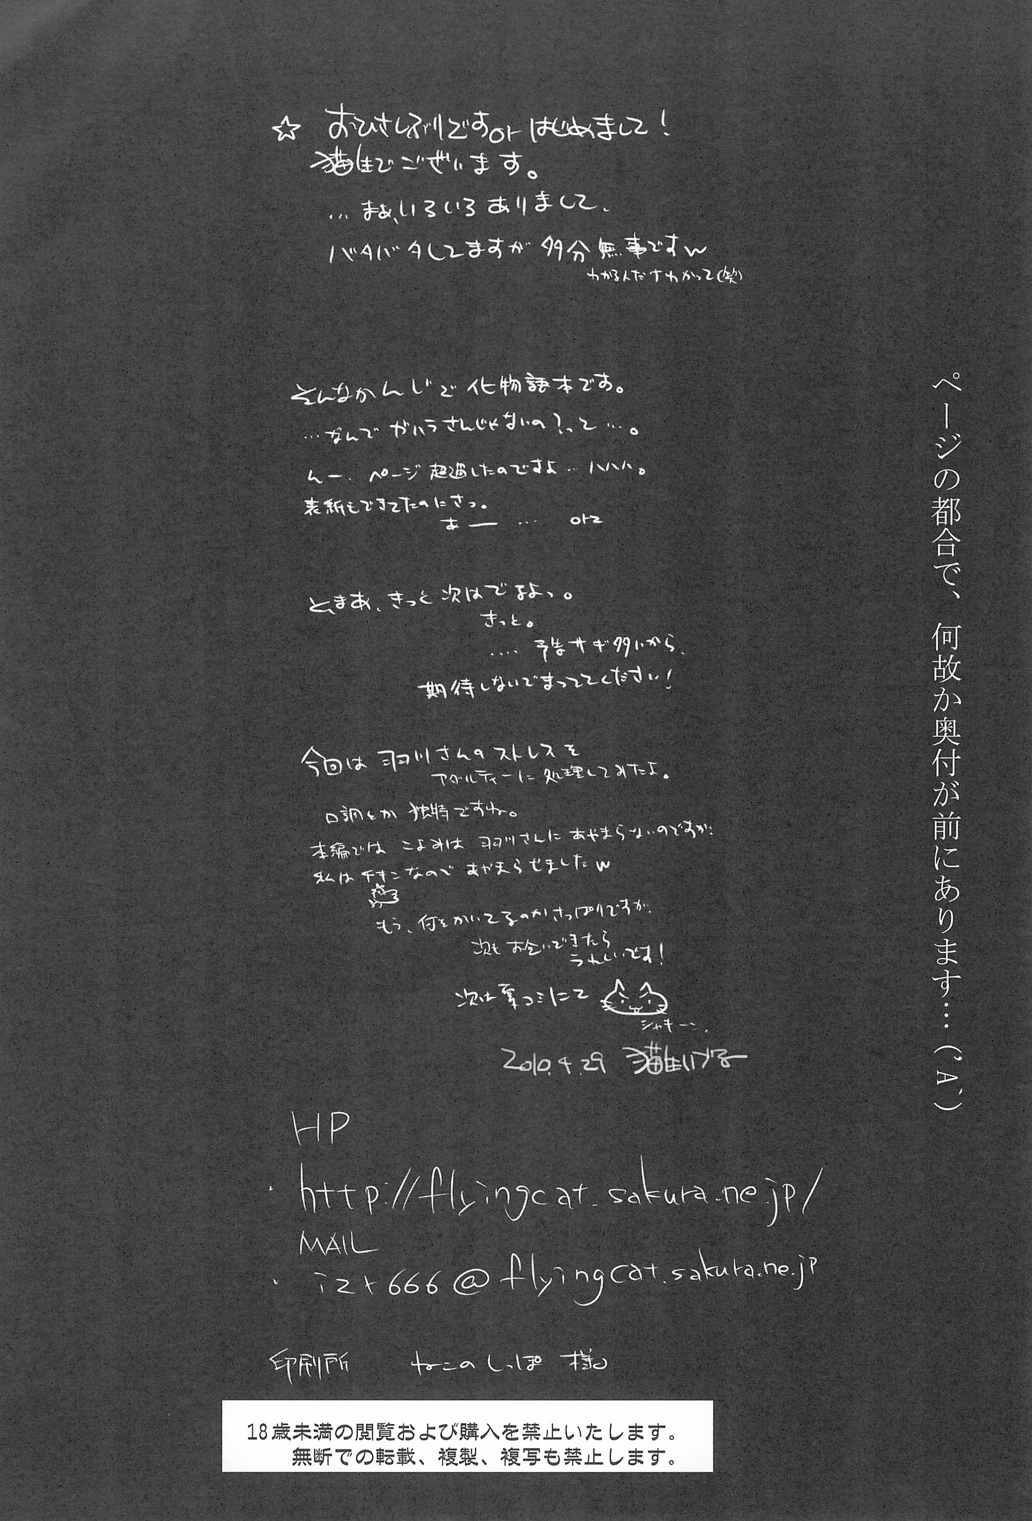 ページの都合で、何故か奥付が前にあります…('A`)
☆ おひさしぶりですor はじめまして！
猫生でございます。
…まぁ、いろいろありまして、
バタバタしてますが多分無事ですw
わかるんだオわかって(笑)
そんなかんじで化物語本です。
…なんでガハラさんじゃないの？って…。
んー、ページ超過したのですよ…ハハハ。
表紙もできてたのにさっ。
あー… orz
と、まあ、きっと次はでるよっ。
きっと。
‥‥予告サギ多いから、
期待しないでまっててください！
今回は羽川さんのストレスを
アダルティーに処理してみたよ。
口調とか独特ですね。
本編ではこよみは羽川さんにあやまらないのですが、
私はチキンなのであやまらせましたw
もう、何をかいてるのかさっぱりですが、
次もお会いできたら
うれしいです！
次は葉つミにて
シャキーン、
2010.4.29 猫生いづる
HP
・http://flyingcat.sakura.ne.jp/
MAIL
・izr666@flyingcat.sakura.ne.jp
印刷所 ねこのしっぽ 様
18歳未満の閲覧および購入を禁止いたします。
無断での転載、複製、複写も禁止します。